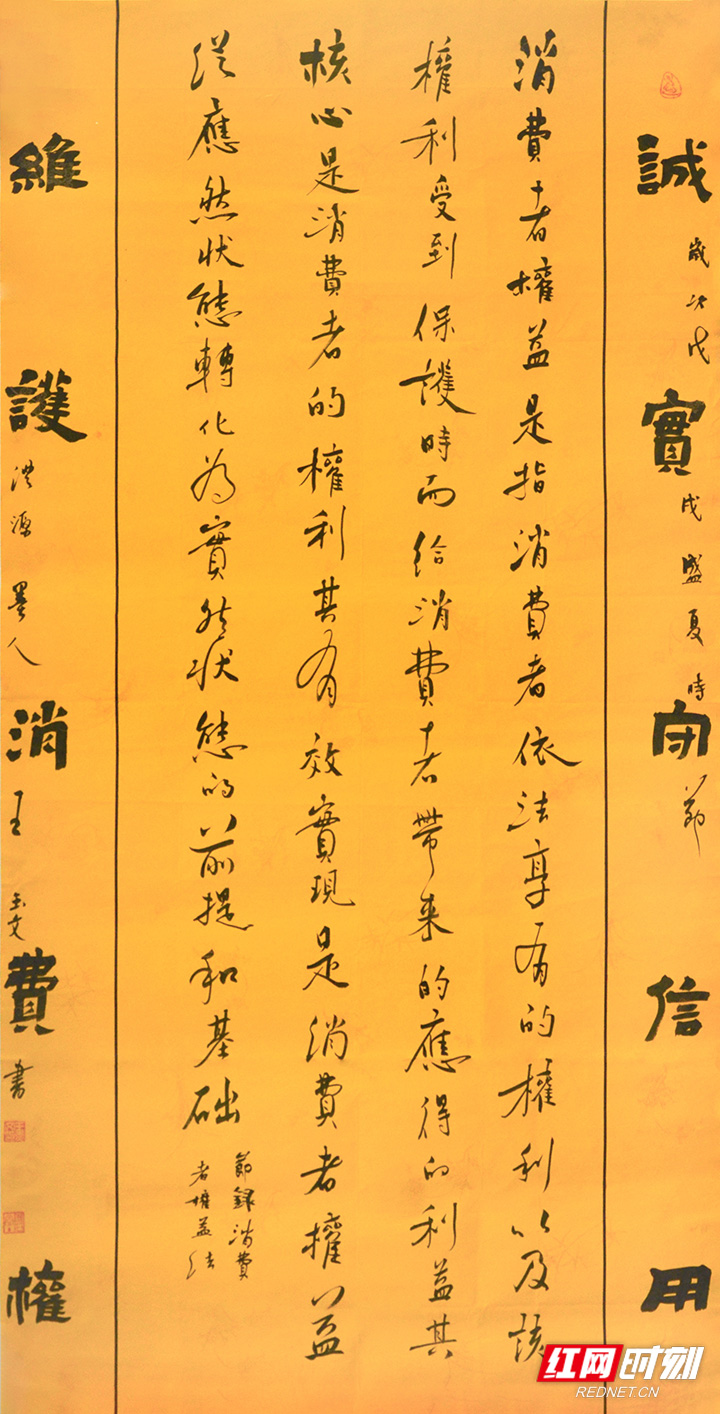 誠實守信用
歲次戊戌盛夏時節
消費者權益是指消費者依法享有的權利以及該
權利受到保護時而給消費者帶來的應得的利益其
核心是消費者的權利其有效實現是消費者權益
從應然状態轉化為實然状態的前提和基础
節録消費
者權益法
維護消費權
源墨人王玉文書
红网时刻
REDNET.CN